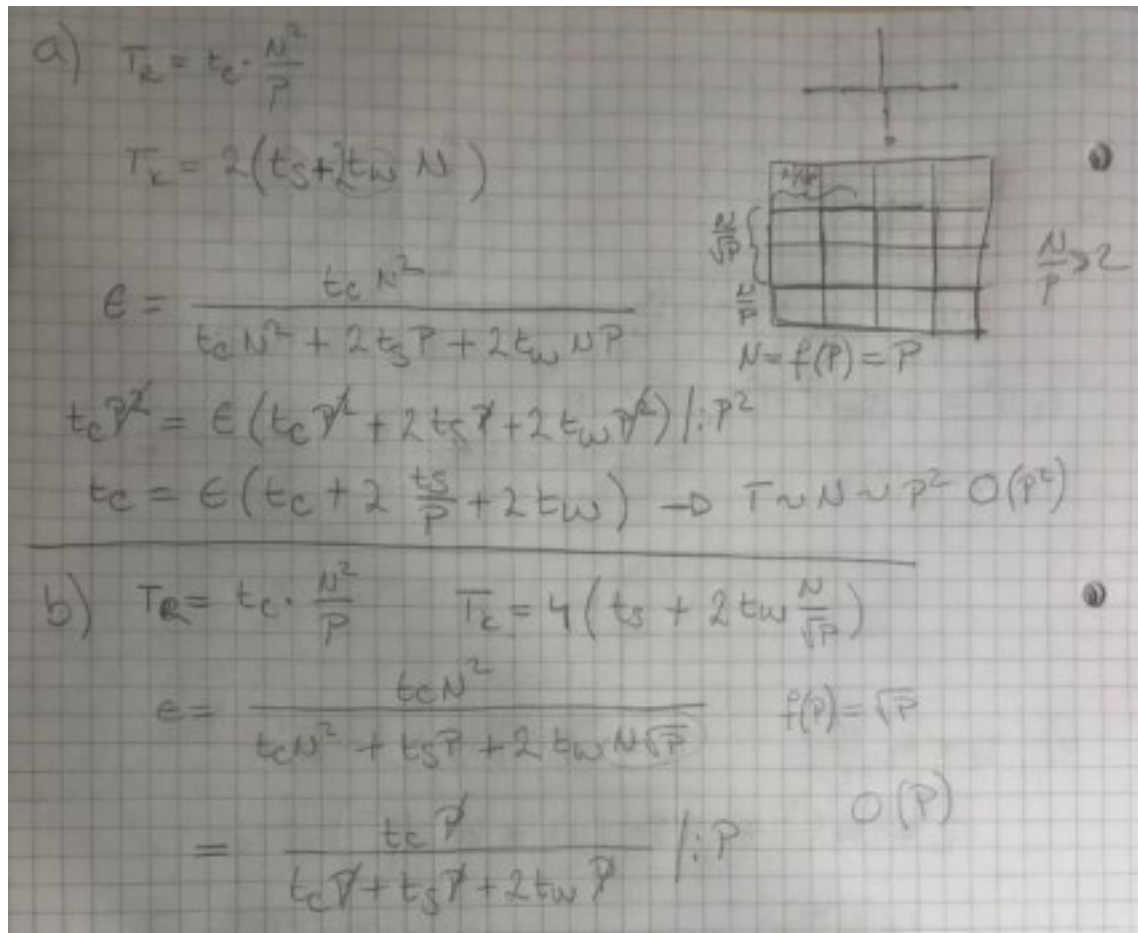 a) T_R = t_c · N²/P
T_k = 2(t_s + 2t_w N)
N/√P
N/P
N/P > 2
ϵ = t_c N² / (t_c N² + 2t_s P + 2t_w NP)
N = f(P) = P
t_c P² = ϵ(t_c P² + 2t_s P + 2t_w P²) /:P²
t_c = ϵ(t_c + 2 t_s/P + 2t_w) → T ~ N ~ P² O(P²)
b) T_R = t_c · N²/P T_k = 4(t_s + 2t_w N/√P)
e = t_c N² / (t_c N² + t_s P + 2 t_w N√P) f(P) = √P
= t_c P / (t_c P + t_s P + 2t_w P) /:P O(P)